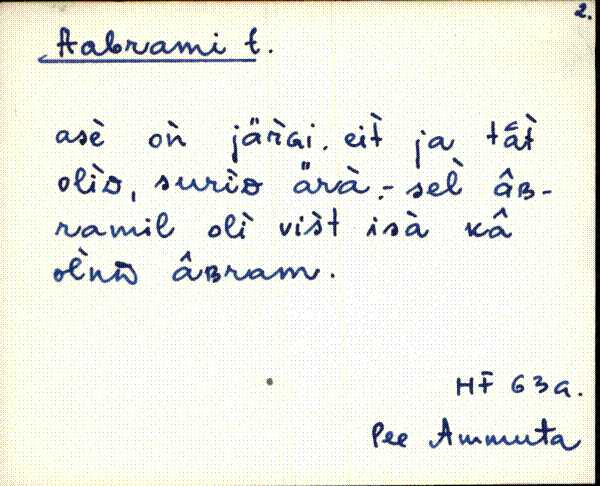 2.
Aabrami t.
asè oǹ järG̀i. eit̀ ja tä̂t̀
olìD, surìD ärà.- sel̀ âB-
ramil olì vis̀t isà kâ
ol̀nD âBram.
HF 63a.
Pee Ammuta